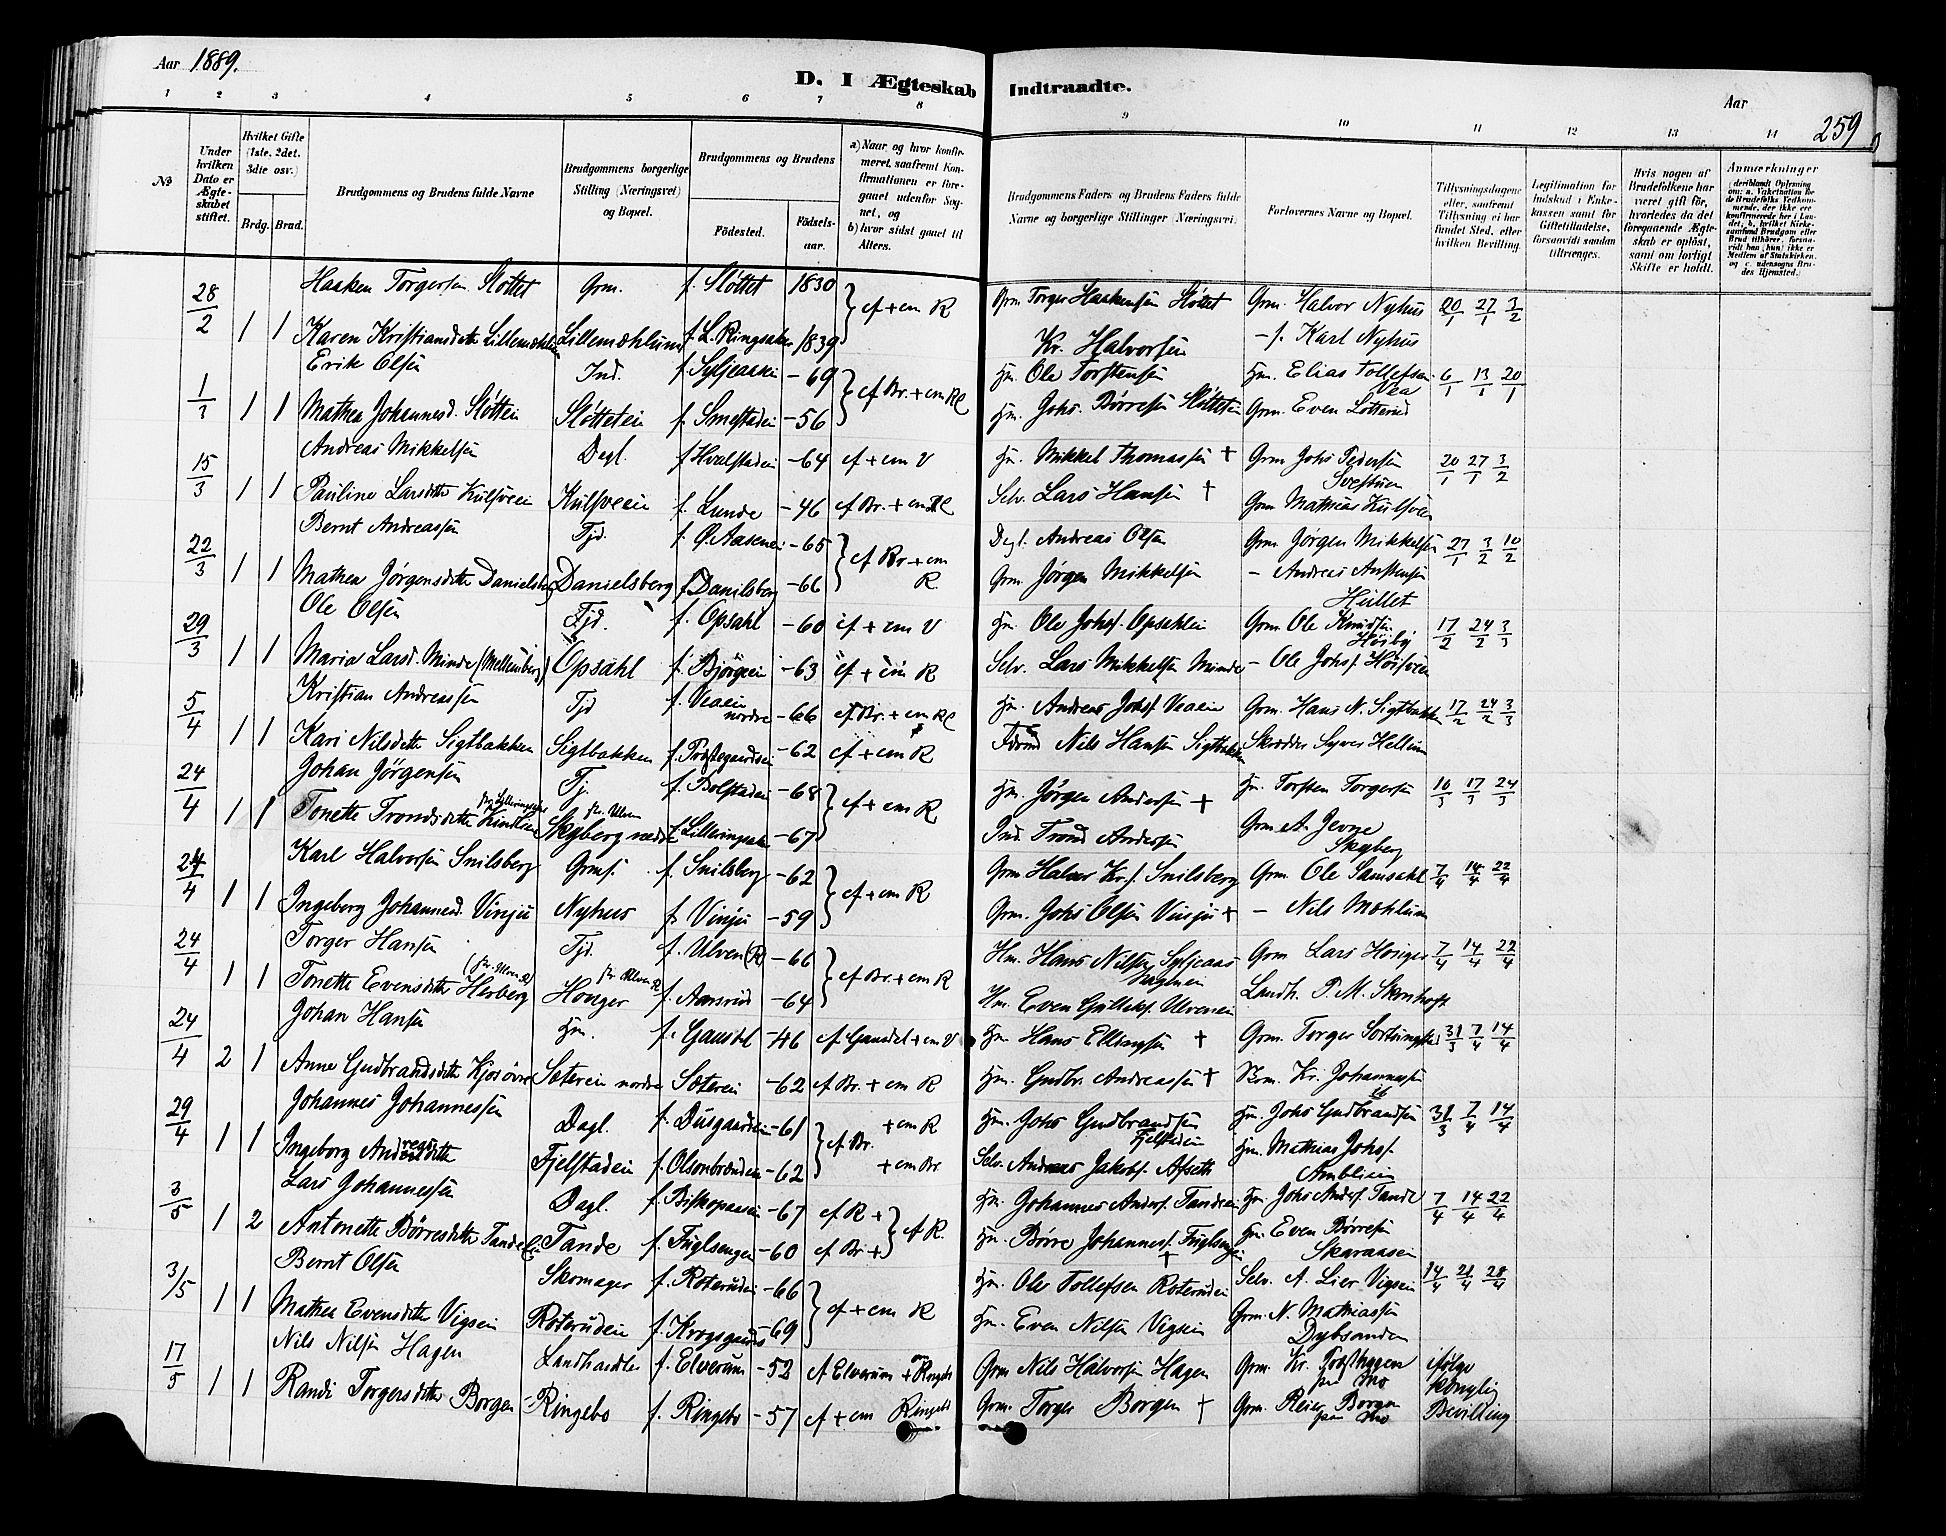 Aar 1889.
D. I Ægteskab Indtraadte.
Aar
259
1 2 3 4 5 6 7 8 9 10 11 12 13 14
№
Under hvilken Dato er Ægteskabet stiftet.
Hvilket Gifte (1ste, 2det, 3die osv.)
Brdg. Brud.
Brudgommens og Brudens fulde Navne
Brudgommens borgerlige Stilling (Næringsvei) og Bopæl.
Brudgommens og Brudens
Fødested.
Fødselsaar.
a) Naar og hvor konfirmeret, saafremt Konfirmationen er foregaaet udenfor Sognet, og
b) hvor sidst gaaet til Alters.
Brudgommens Faders og Brudens Faders fulde Navne og borgerlige Stillinger (Næringsvei).
Forlovernes Navne og Bopæl.
Tillysningsdagene eller, saafremt Tillysning ei har fundet Sted, efter hvilken Bevilling.
Legitimation for Indskud i Enkekassen samt for Giftetilladelse, forsaavidt saadan tiltrænges.
Hvis nogen af Brudefolkene har været gift før, hvorledes da det foregaaende Ægteskab er opløst, samt om lovligt Skifte er holdt.
Anmærkninger
28/2 Haaken Torgersen Sløttet Grm. f. Sløttet 1830 cf + em R Grm Torger Haakensen Sløttet Grm. Halvor Nyhus 20/1 27/1 3/2
1 1 Karen Kristiansdatter Lillemæhlum Lillemæhlum f. L. Ringsaker 1839 Kr. Halvorsen – f. Karl Nyhus
1/3 Erik Olsen Ind. f. Syljeaasen – 69 cf Br. + em R Hm. Ole Torstensen Hm. Elias Tollefsen Vea 6/1 13/1 20/1
1 1 Mathea Johannesd. Sløtten Sløtteteien f. Smestadeien – 56 Hm. Johs. Børresen Sløtteteien Grm. Even Lotterud
15/3 Andreas Mikkelsen Dagl. f. Hvalstadeien – 64 cf + em V Hm. Mikkel Thomassen + Grm Johs Pedersen 20/1 27/1 3/2
1 1 Pauline Larsdatter Kulsveen Kulsveen f. Lunde – 46 cf Br. + em R Selv. Lars Hansen + Grm Mathias Kulsveen
22/3 Bernt Andreassen Tjd. f. Ø. Aaseneie – 65 cf Br + em R Dagl. Andreas Olsen Grm. Jørgen Mikkelsen 27/1 3/2 10/2
1 1 Mathea Jørgensdatter Danielsberg Danielsberg f. Danilsberg – 66 Grm. Jørgen Mikkelsen – Andreas Hullet
29/3 Ole Olsen Tjd. f. Opsahl – 60 cf + em V Hm. Ole Johs. Opsahleie Grm. Ole Knudsen Høiby 17/2 24/2 3/3
1 1 Maria Larsd. Minde (Mellumberg) Opsahl f. Bjørgeeie – 63 cf + em R Selv. Lars Mikkelsen Minde – Ole Johs. Høisveen
5/4 Kristian Andreassen Tjd f. Veaeie nordre – 66 cf Br. + em R Hm. Andreas Johs. Veaeie Grm. Hans N. Sigtbakken 17/2 24/2 3/3
1 1 Kari Nilsdatter Sigtbakken Sigtbakken f. Prestegaardseie – 62 cf + em R Nils Hansen Sigtbakken Skrædder Syver Hellum
24/4 Johan Jørgensen Tj. f. Bolstadeien – 68 cf + em R Hm. Jørgen Andersen + Hm. Torsten Torgersen 10/3 17/3 24/3
1 1 Tonette Trondsdatter Kindlien Skyberg nedre f. Lilleringsaker – 67 Ind. Trond Andersen Grm A. Jevne Skyberg
24/4 Karl Halvorsen Snilsberg Grmf. f. Snilsberg – 62 cf + em R Grm Halvor Kr.f. Snilsberg Grm. Ole Samsahl 7/4 14/4 22/4
1 1 Ingeborg Johannesd. Vinju Nyhus f. Vinju – 59 Grm. Johs Olsen Vinju + – Nils Mæhlum
24/4 Torger Hansen Tjd. f. Ulven (R) – 66 cf Br. + em R Hm. Hans Nilsen Syljeaas Grm Lars Honger 7/4 14/4 22/4
1 1 Tonette Evensdatter Herberg (fr. Ulven R) Honger fr. Ulven R f. Aasrud – 64 Hm. Even Gulliks. Ulveneie Landh. P. M. Stenhoft
24/4 Johan Hansen Hm. f. Gausdal – 46 cf Gausdal + em V Hm. Hans Ellingsen + Grm. Torger 31/3 7/4 14/4
2 1 Anne Gudbrandsdatter Kjos øvre Sætereie nordre Sætereie – 62 cf Br. + em R Hm. Gudbr. Andreassen + Kr. Johannessen
29/4 Johannes Johannessen Dagl. f. Dusgaardeie – 61 cf Br. + em R Hm. Johs Gudbrandsen Fjelstadeie Hm. Johs Gudbrandsen 31/3 7/4 14/4
1 1 Ingeborg Andreasdatter Fjelstadeie f. Olsonbrænden – 62 + em Br Selv. Andreas Jakobs. Afseth Hm. Mathias Johs. Amblieie
3/5 Lars Johannessen Dagl. f. Biskopaaseie – 67 cf R + cf R. Hm. Johannes Anders. Tandeeie Hm. Johs Anders. Tande 7/4 14/4 22/4
1 2 Antonette Børresdatter Tandeeie Tande f. Fuglsengen – 60 cf Br + Hm. Børre Johannes. Fuglsengen + Hm. Even Børresen Skaraasen
3/5 Bernt Olsen Skomager f. Roterudeie – 66 cf + em R Hm. Ole Tollefsen Roterudeie Selv. A. Lier Vigseie 14/4 21/4 28/4
1 1 Mathea Evensdatter Vigseie Roterudeie f. Krogsgaards – 69 Hm. Even Nilsen Vigseie Grm. N. Mathiassen Dybsanden
17/5 Nils Nilsen Hagen Landhandler f. Elverum – 52 cf Elverum + em Ringebo Grm Nils Halvorsen Hagen Grm. Kr. Præsthagen paa Mo ifølge
1 1 Randi Torgersdatter Borgen Ringebo f. Ringebo – 57 cf + em Ringebo Grm. Torger Borgen + Grm. Reier Borgen paa Mo kongelig Bevilling